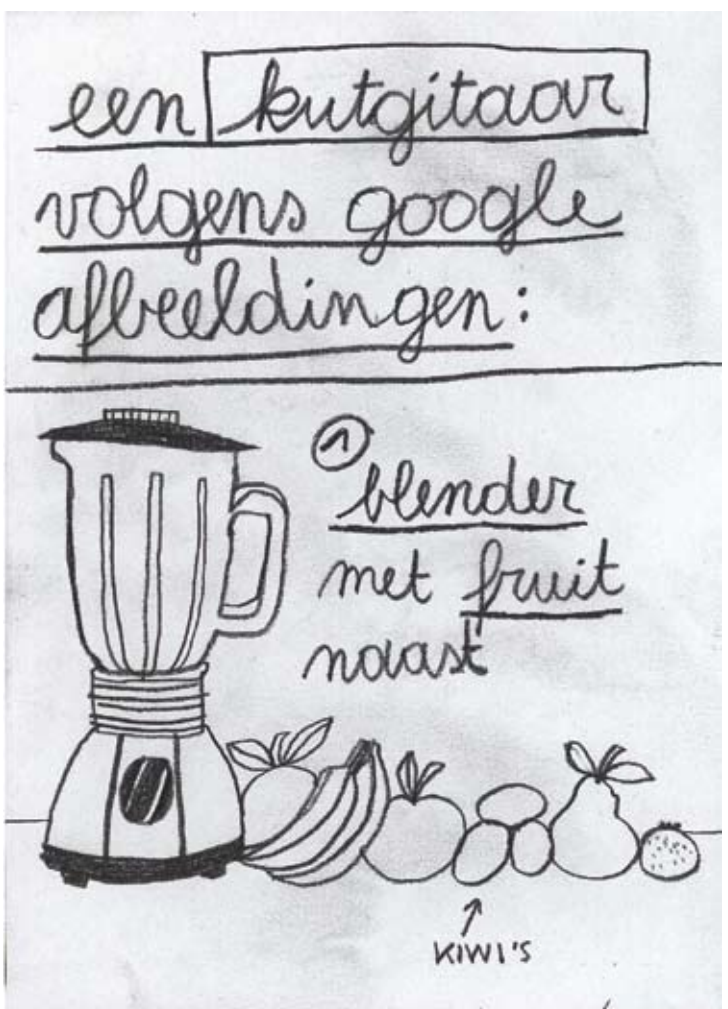 een kutgitaar
volgens google
afbeeldingen:
1
blender
met fruit
naast
KIWI'S